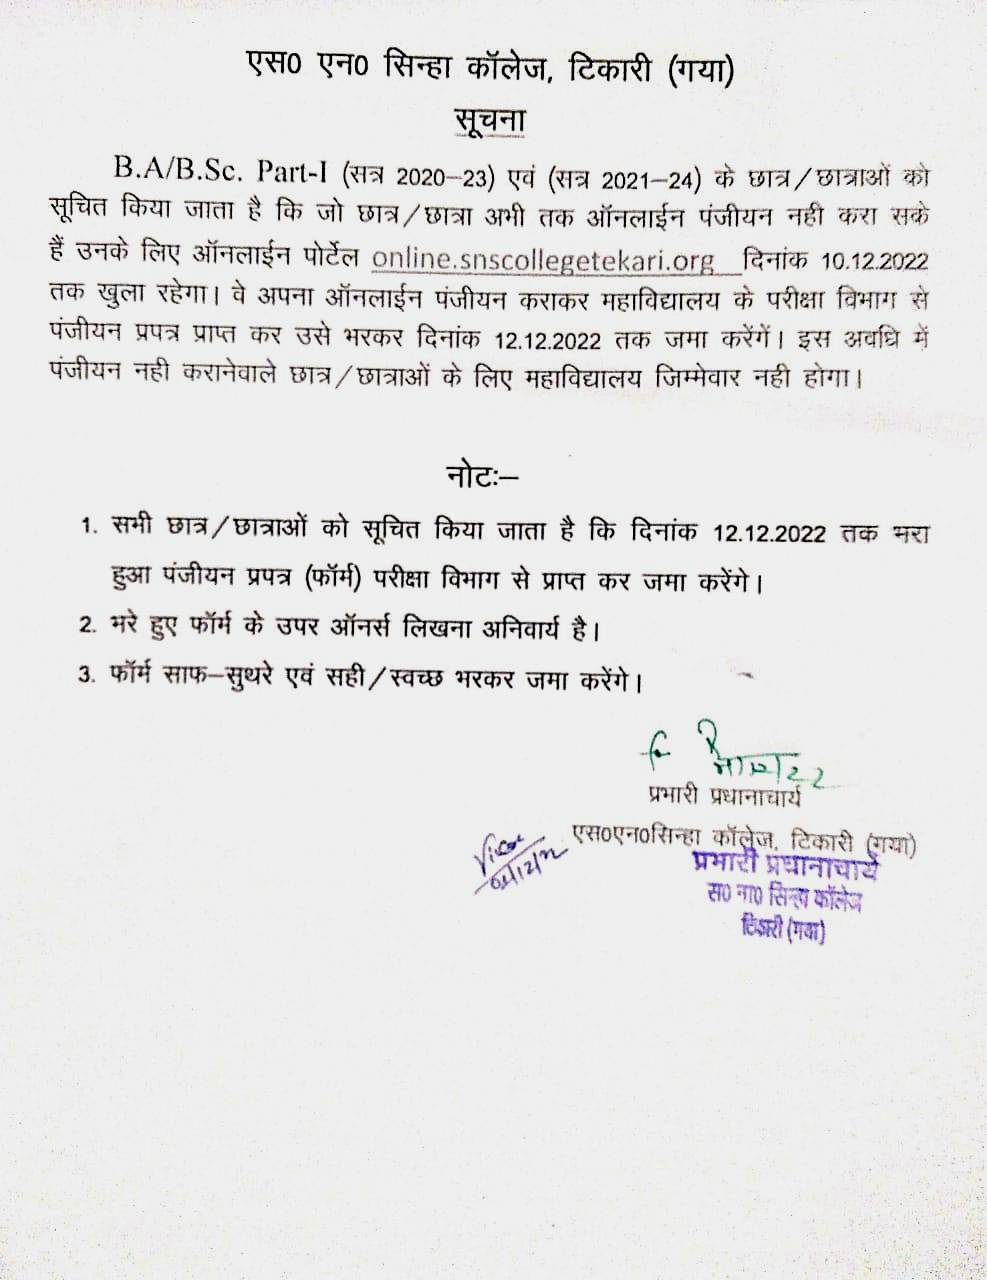 एस0 एन0 सिन्हा कॉलेज, टिकारी (गया)
सूचना
B.A/B.Sc. Part-I (सत्र 2020–23) एवं (सत्र 2021–24) के छात्र/छात्राओं को
सूचित किया जाता है कि जो छात्र/छात्रा अभी तक ऑनलाईन पंजीयन नही करा सके
हैं उनके लिए ऑनलाईन पोर्टेल online.snscollegetekari.org दिनांक 10.12.2022
तक खुला रहेगा। वे अपना ऑनलाईन पंजीयन कराकर महाविद्यालय के परीक्षा विभाग से
पंजीयन प्रपत्र प्राप्त कर उसे भरकर दिनांक 12.12.2022 तक जमा करेंगें। इस अवधि में
पंजीयन नही करानेवाले छात्र/छात्राओं के लिए महाविद्यालय जिम्मेवार नही होगा।
नोटः–
1. सभी छात्र/छात्राओं को सूचित किया जाता है कि दिनांक 12.12.2022 तक भरा
हुआ पंजीयन प्रपत्र (फॉर्म) परीक्षा विभाग से प्राप्त कर जमा करेंगे।
2. भरे हुए फॉर्म के उपर ऑनर्स लिखना अनिवार्य है।
3. फॉर्म साफ–सुथरे एवं सही/स्वच्छ भरकर जमा करेंगे।
प्रभारी प्रधानाचार्य
एस0एन0सिन्हा कॉलेज, टिकारी (गया)
प्रभारी प्रधानाचार्य
स० ना० सिन्हा कॉलेज
टिकारी (गया)